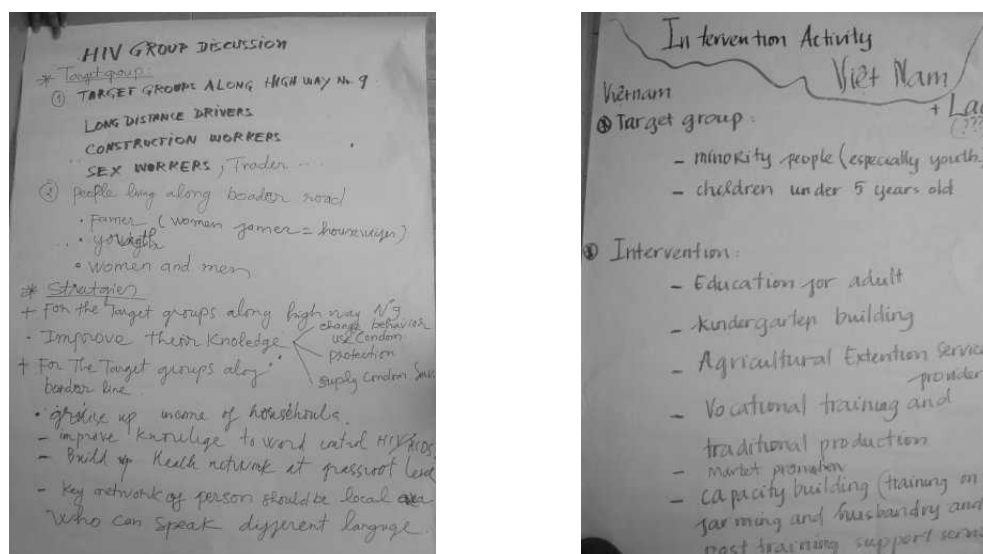 HIV GROUP DISCUSSION
* Target group:
① TARGET GROUPS ALONG HIGH WAY No 9.
LONG DISTANCE DRIVERS
CONSTRUCTION WORKERS
SEX WORKERS, Trader ...
② people living along boader road
• Famer (women famer = housewifes)
• women and men
* Stratgies
+ For the Target groups along high way No 9
• Improve their Knoledge
change behavior
use Condom
protection
supply Condom
+ For The Target groups along
boader line.
up income of households
– improve knowlige to word control HIV/AIDS
– Build up Health network at grassroot level
– Key network of person should be local
who can speak different langage.
Intervention Activity
Việt Nam
Việtnam
+ Lao
(???
Target group:
– minority people (especially youth)
– children under 5 years old
Intervention:
– Education for adult
– kindergarten building
– Agricultural Extention Service
provider
– Vocational training and
traditional production
– market promotion
– capacity building (training on
farming and husbandry and
post training support service